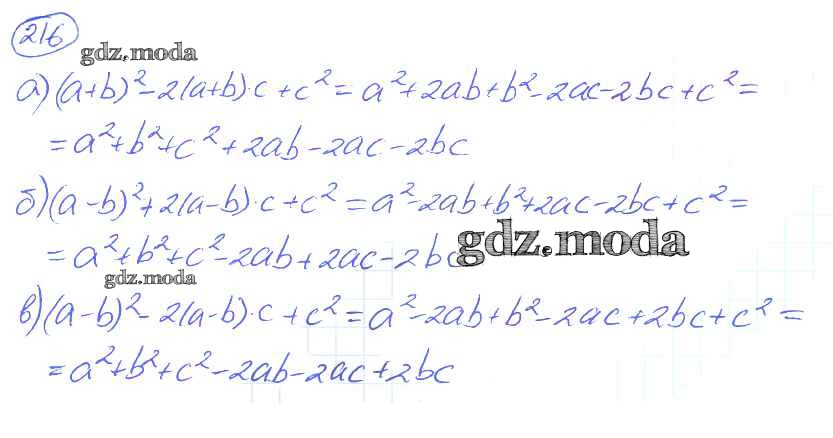 216
gdz.moda
а) (a+b)² - 2(a+b)·c + c² = a² + 2ab + b² - 2ac - 2bc + c² =
= a² + b² + c² + 2ab - 2ac - 2bc
б) (a-b)² + 2(a-b)·c + c² = a² - 2ab + b² + 2ac - 2bc + c² =
= a² + b² + c² - 2ab + 2ac - 2bc
gdz.moda
gdz.moda
в) (a-b)² - 2(a-b)·c + c² = a² - 2ab + b² - 2ac + 2bc + c² =
= a² + b² + c² - 2ab - 2ac + 2bc